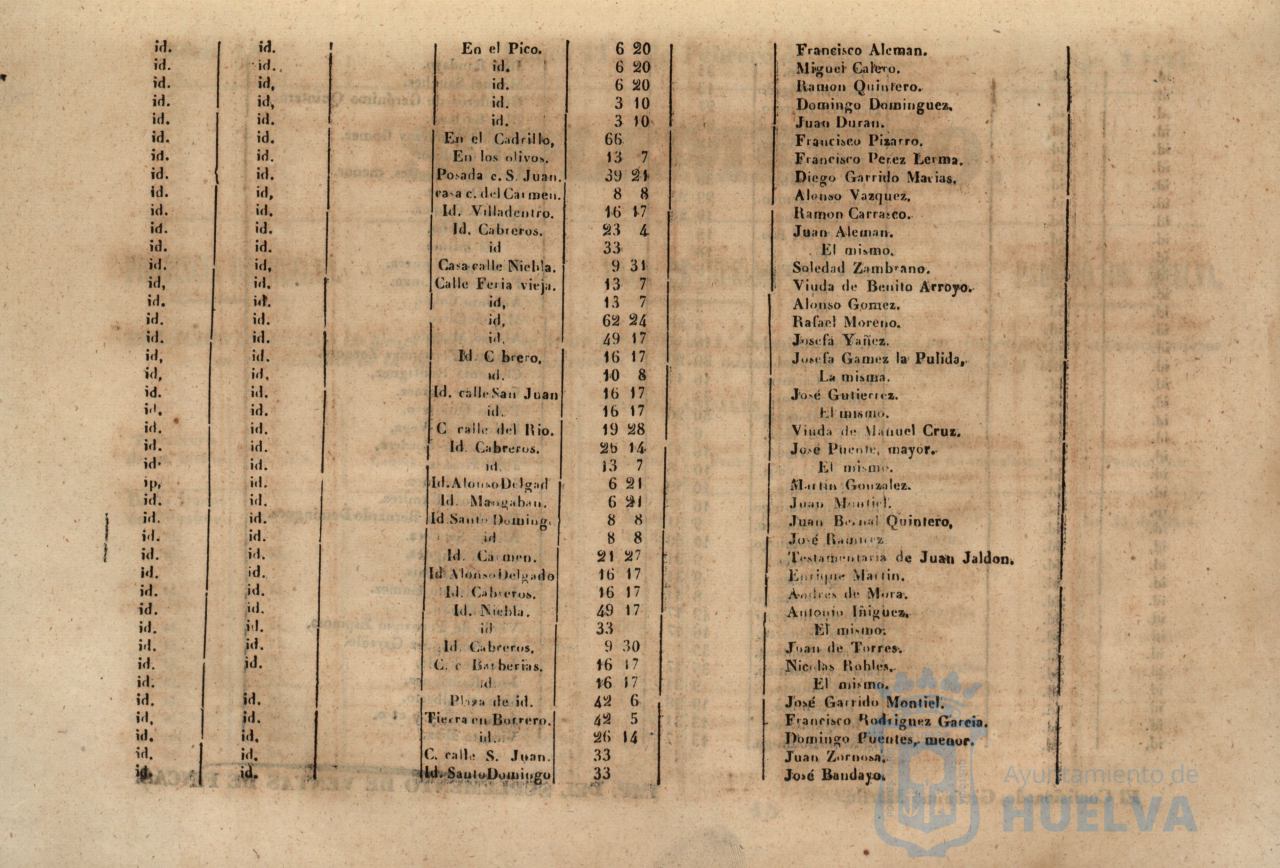 id. id. En el Pico. 6 20 Francisco Aleman.
id. id. id. 6 20 Miguel Calero.
id. id, id. 6 20 Ramon Quintero.
id. id, id. 3 10 Domingo Dominguez.
id. id. id. 3 10 Juan Duran.
id. id. En el Cadrillo, 66 Francisco Pizarro.
id. id. En los olivos. 13 7 Francisco Perez Lerma.
id. id. Posada c. S. Juan. 39 21 Diego Garrido Macias.
id. id, casa c. del Carmen. 8 8 Alonso Vazquez.
id. id. Id. Villadentro. 16 17 Ramon Carrasco.
id. id. Id. Cabreros. 23 4 Juan Aleman.
id. id. id 33 El mismo.
id. id, Casa calle Niebla. 9 31 Soledad Zambrano.
id, id. Calle Feria vieja. 13 7 Viuda de Benito Arroyo.
id. id. id, 13 7 Alonso Gomez.
id. id. id, 62 24 Rafael Moreno.
id. id. id. 49 17 Josefa Yañez.
id, id. Id. C brero. 16 17 Josefa Gamez la Pulida,
id, id. id. 10 8 La misma.
id. id. Id. calle San Juan 16 17 José Gutierrez.
id. id. id. 16 17 El mismo.
id. id. C calle del Rio. 19 28 Viuda de Manuel Cruz.
id. id. Id. Cabreros. 26 14 José Puente, mayor.
id. id. id. 13 7 El mismo.
ip, id. Id. Alonso Delgad 6 21 Martin Gonzalez.
id. id. Id. Mangaban. 6 21 Juan Montiel.
id. id. Id Santo Doming. 8 8 Juan Bernal Quintero,
id. id. id 8 8 José Ramirez
id. id. Id. Carmen. 21 27 Testamentaria de Juan Jaldon.
id. id. Id Alonso Delgado 16 17 Enrique Martin.
id. id. Id. Cabreros. 16 17 Andres de Mora.
id. id. Id. Niebla. 49 17 Antonio Iñiguez.
id. id. id 33 El mismo.
id. id. Id. Cabreros. 9 30 Juan de Torres.
id. id. C. c Barberias. 16 17 Nicolas Robles.
id. id. 16 17 El mismo.
id. id. Plaza de id. 42 6 José Garrido Montiel.
id, id. Tierra en Borrero. 42 5 Francisco Rodriguez Garcia.
id. id. id. 26 14 Domingo Puentes, menor.
id. id. C. calle S. Juan. 33 Juan Zornosa.
id. id. Id. Santo Domingo 33 José Bandayo.
Ayuntamiento de
HUELVA